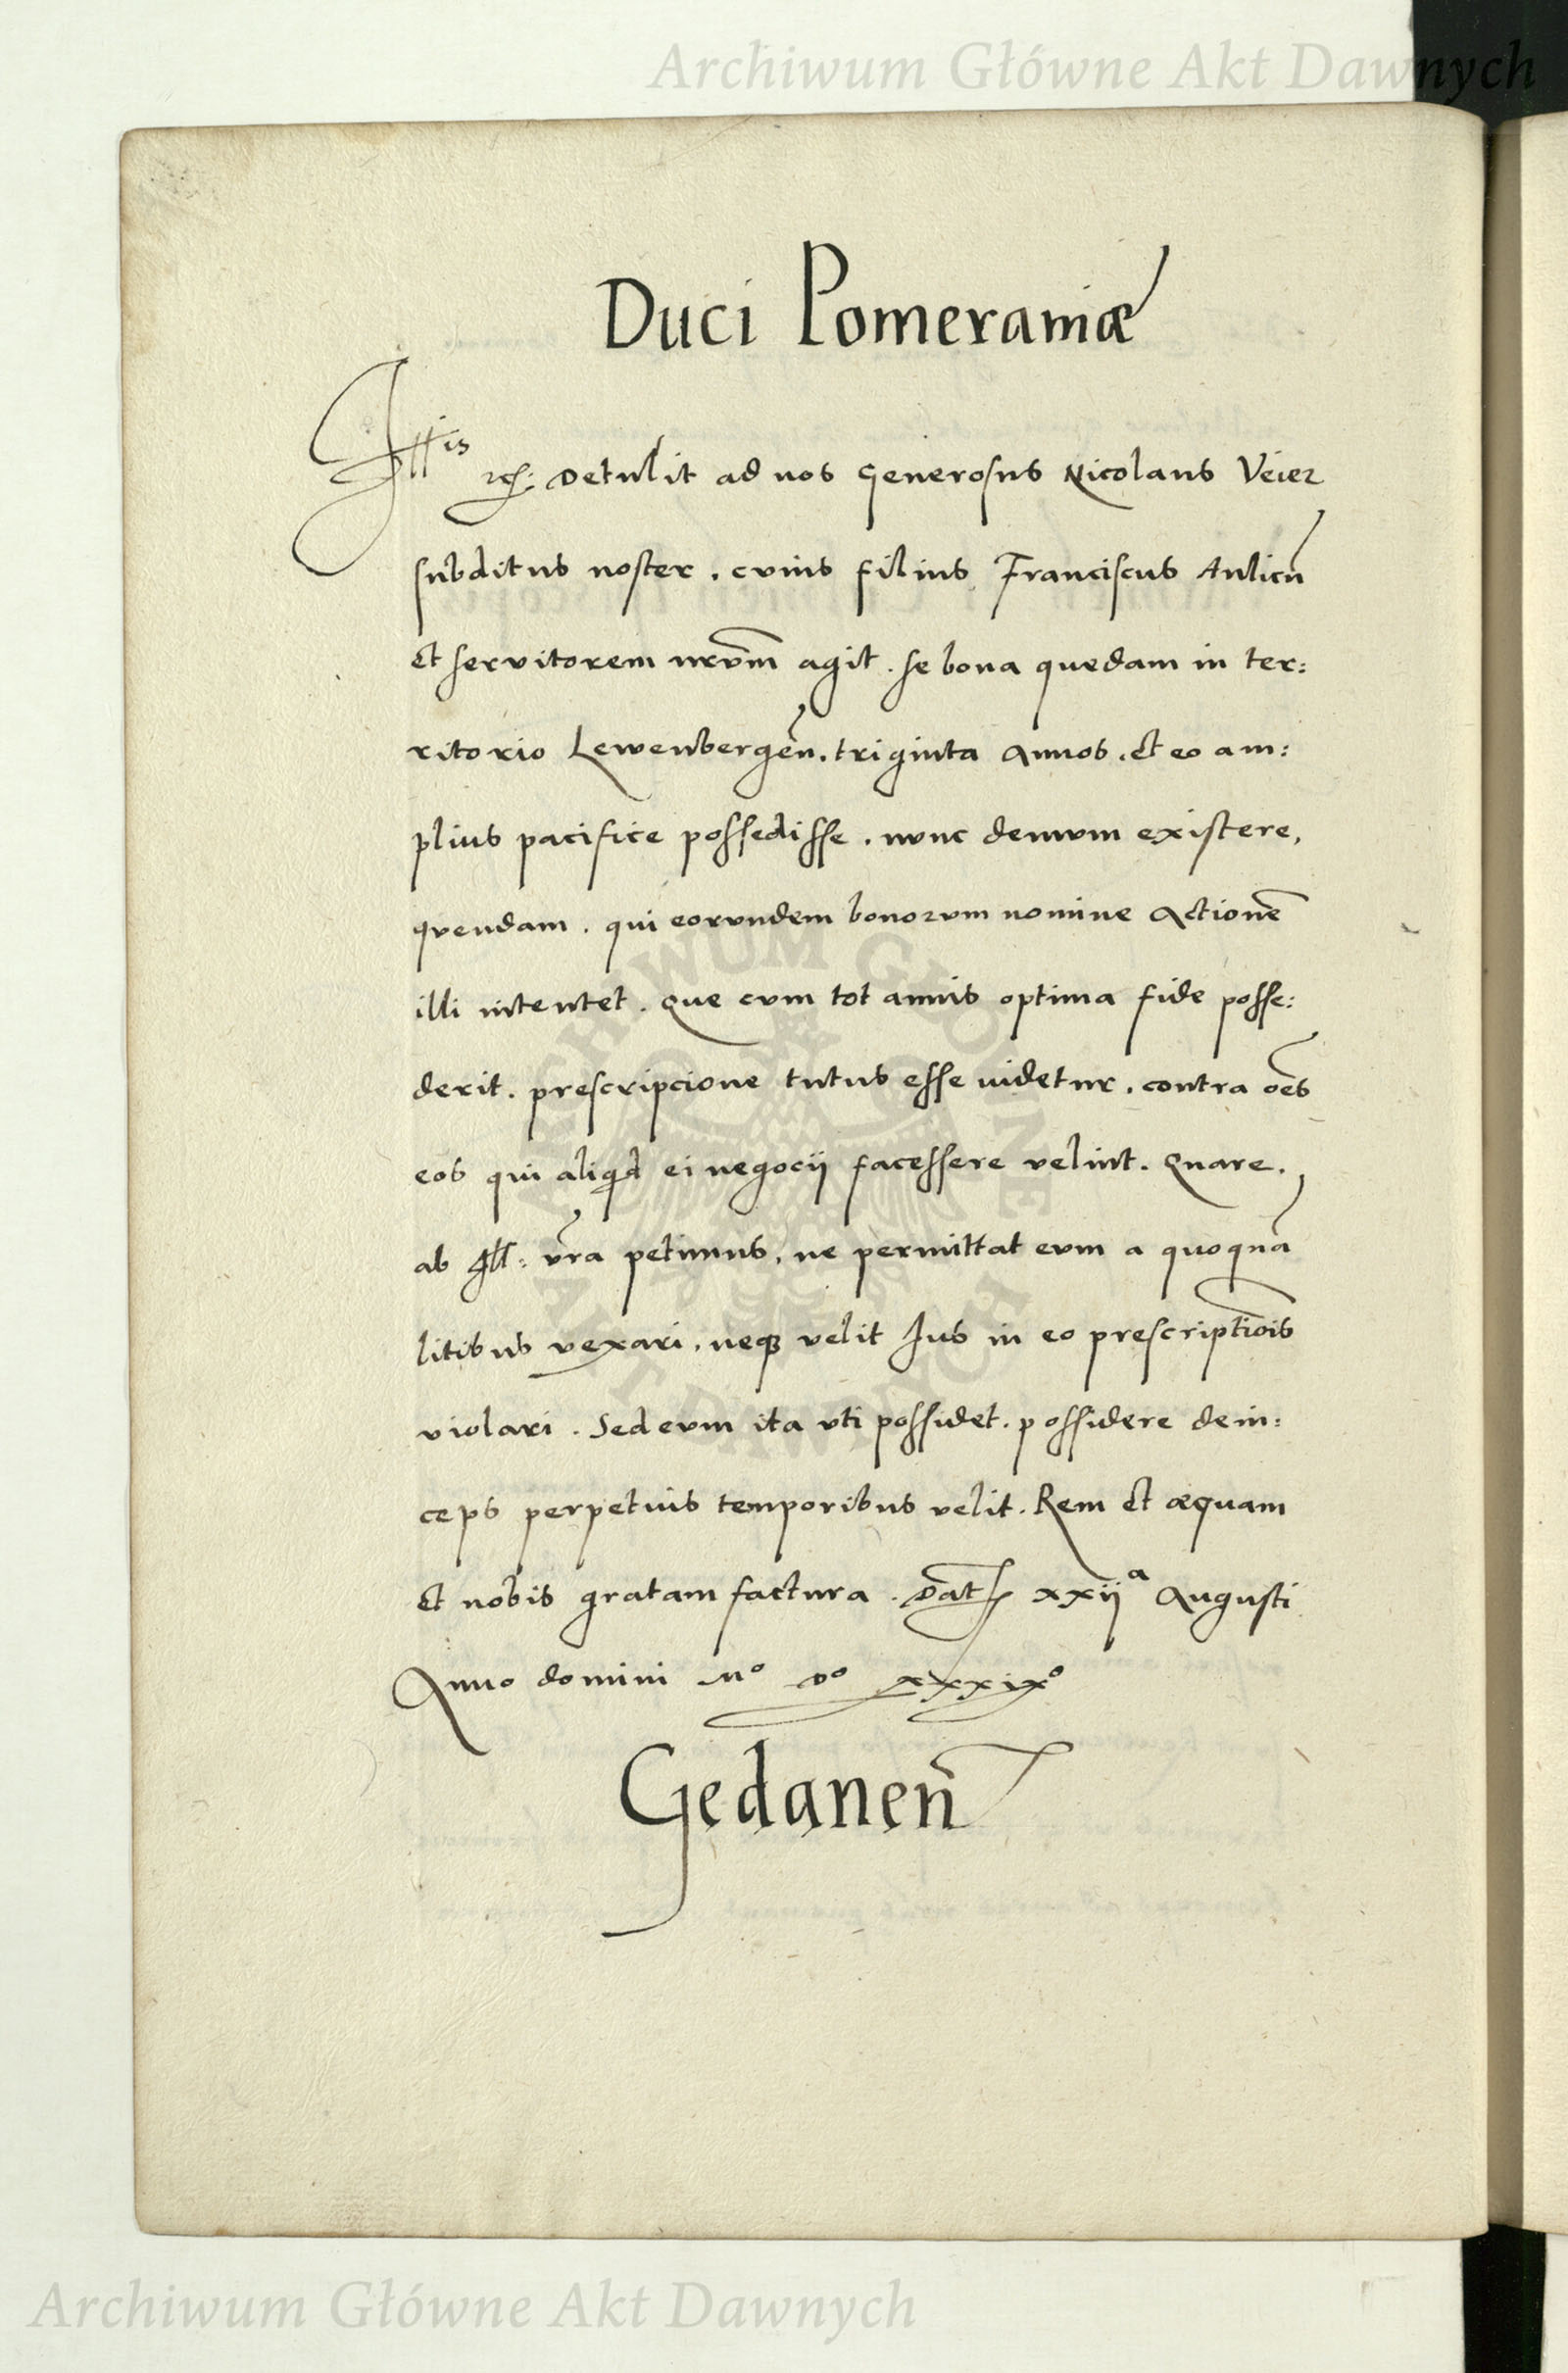 Archiwum Główne Akt Dawnych
Duci Pomeraniæ
Illis rcs: Detulit ad nos Generosus Nicolaus Veier
subditus noster. cuius filius Franciscus Aulicū
et servitorem nrūm agit. se bona quedam in ter:
ritorio Lewenbergēn. triginta Annos. et eo am:
plius pacifice possedisse. nunc demum existere,
quendam. qui eorundem bonorum nomine Actionē
illi intentet. Que cum tot annis optima fide posse:
derit. prescripcione tutus esse uidetur. contra oēs
eos qui aliqd ei negocii facessere velint. Quare.
ab Ill: vrā petimus. ne permittat eum a quoquā
litibus vexari. neqz velit Jus in eo prescriptiōis
violari. Sed eum ita uti possidet. possidere dein:
ceps perpetuis temporibus velit. Rem et æquam
et nobis gratam factura. Dat xxiiª Augusti
Anno domini Mº Dº xxxixº
Gedanēn
ARCHIWUM GŁÓWNE
AKT DAWNYCH
Archiwum Główne Akt Dawnych